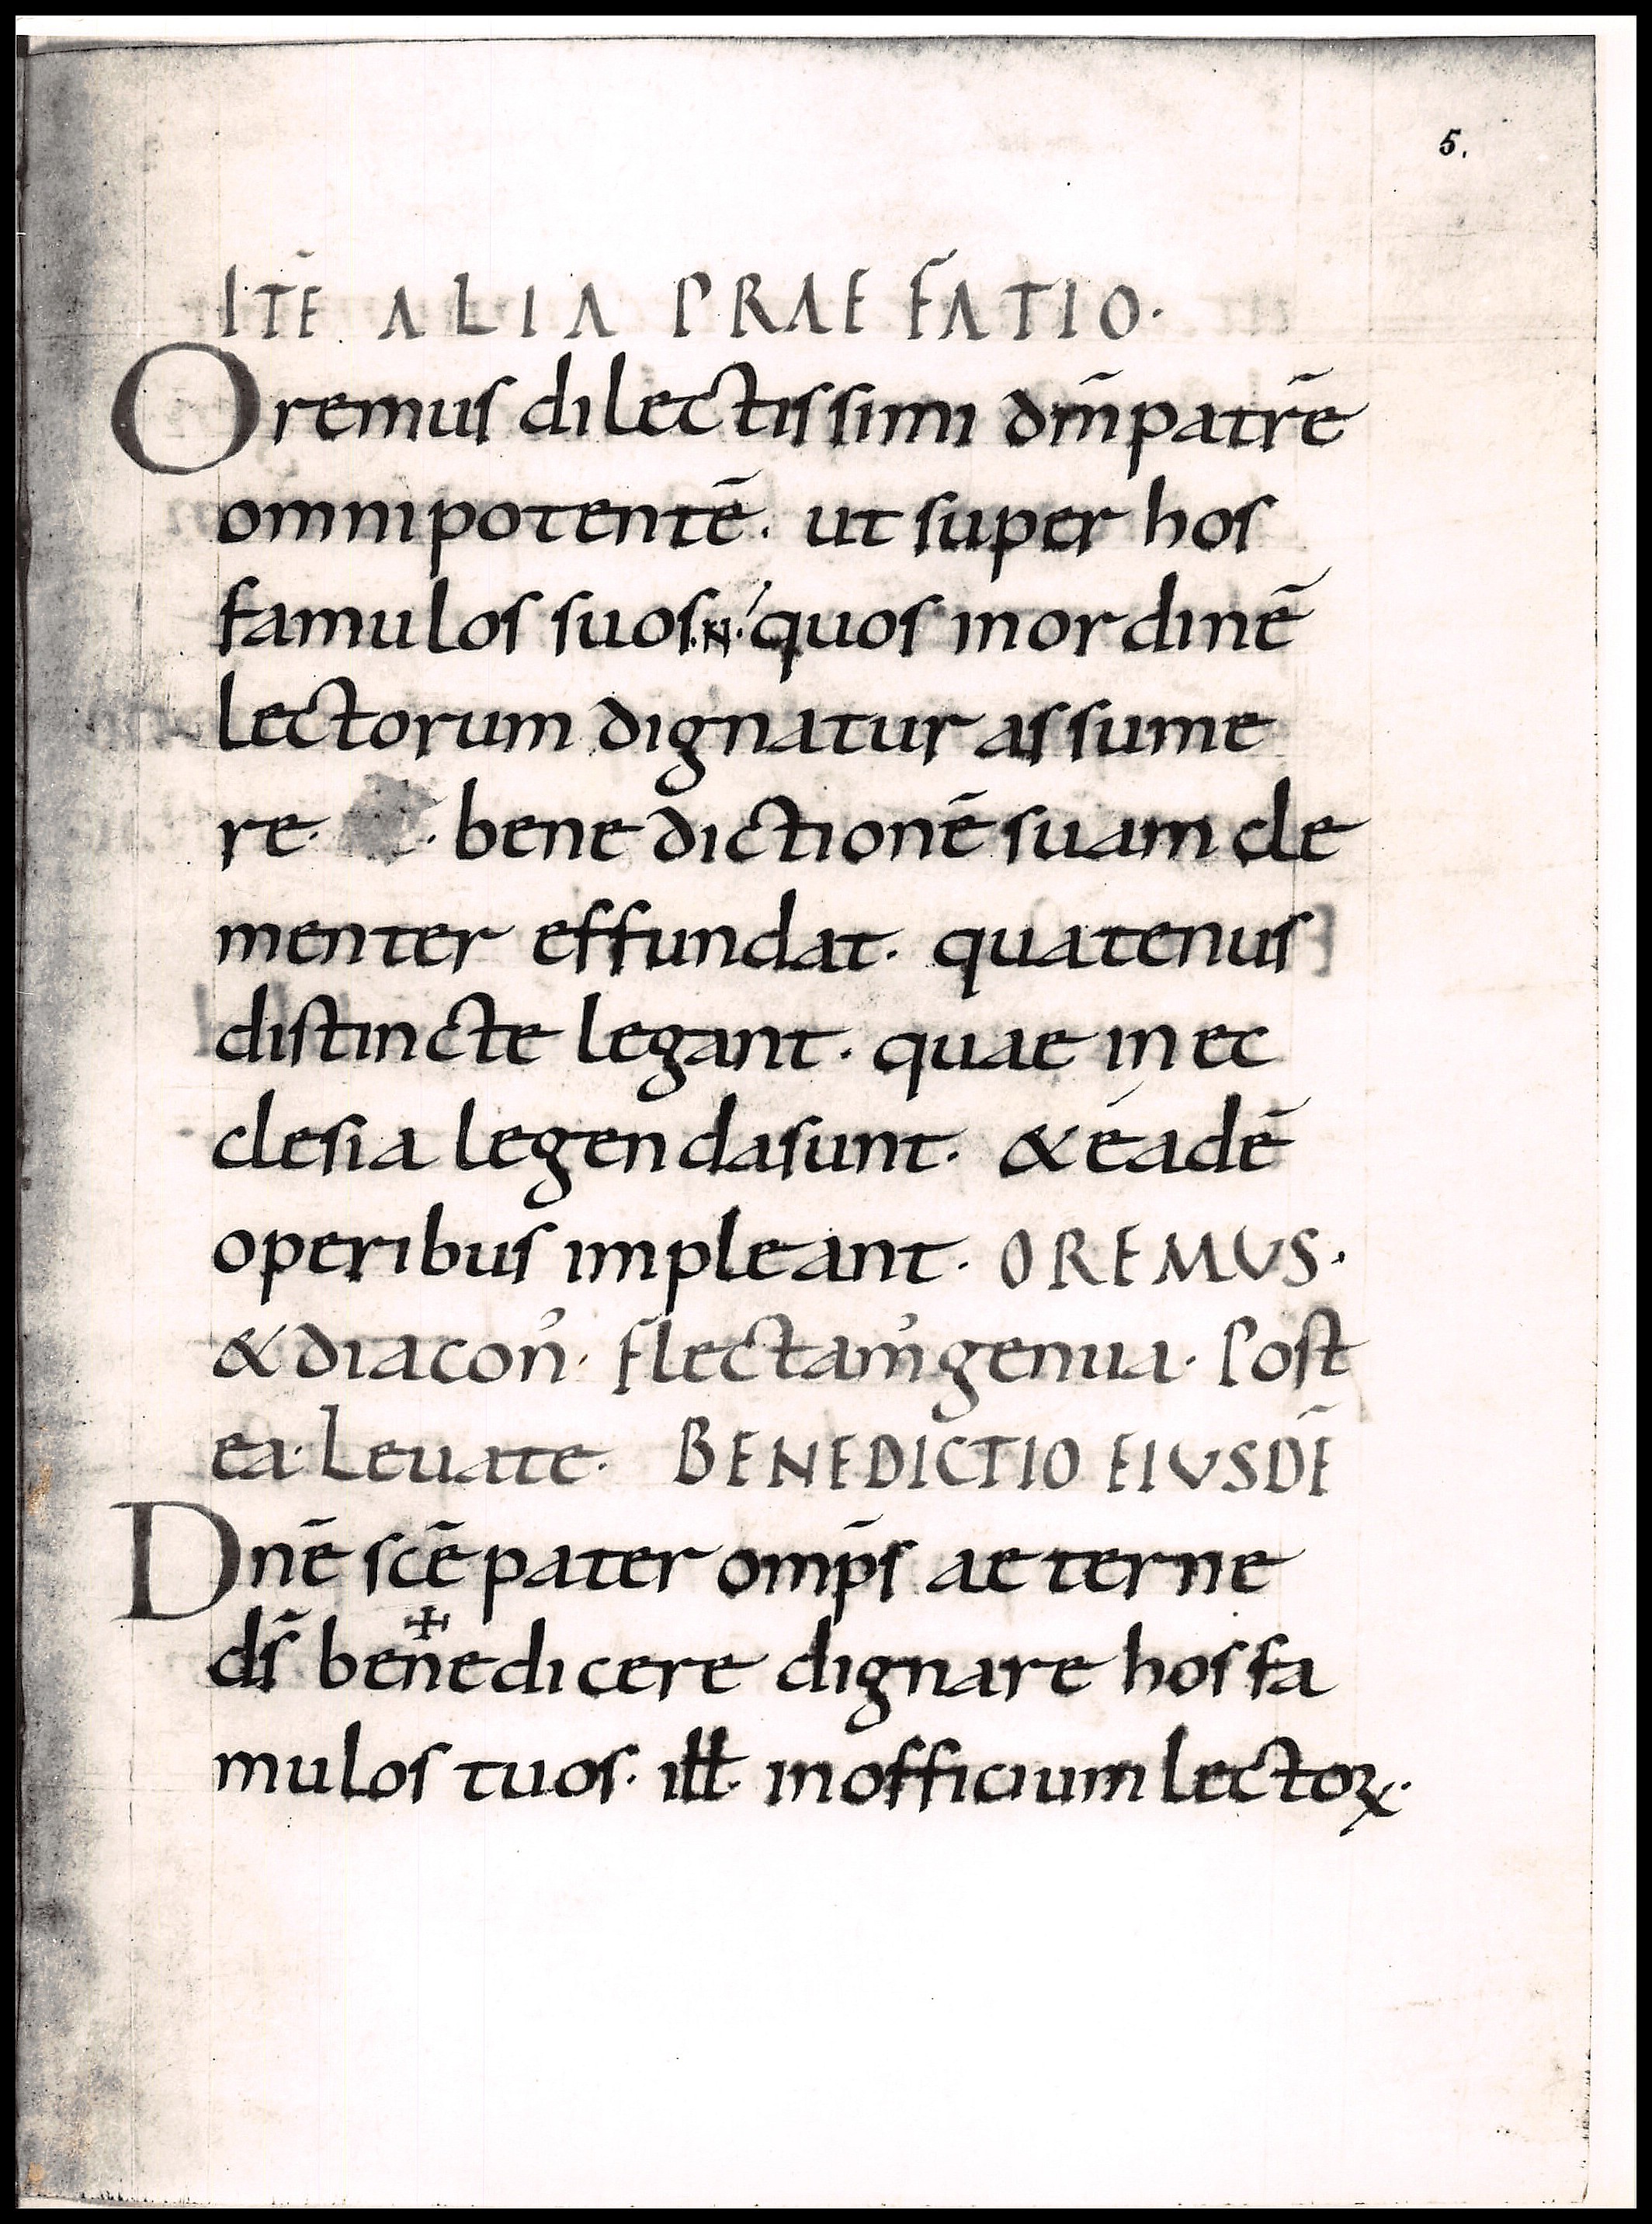 5.
ITĒ ALIA PRAEFATIO·
Oremus dilectissimi dm̄ patrē
omnipotentē· ut super hos
famulos suos ·N· quos in ordinē
lectorum dignatur assume
re· · benedictionē suam cle
menter effundat· quatenus
distincte legant· quae in ec
clesia legenda sunt· & eadē
operibus impleant· OREMUS·
& diacon̄· flectam' genua· Post
ea· Leuate· BENEDICTIO EIUSDĒ
Dnē scē pater omp̄s aeterne
ds̄ bene✝dicere dignare hos fa
mulos tuos· ill̄· in officium lectoꝝ·